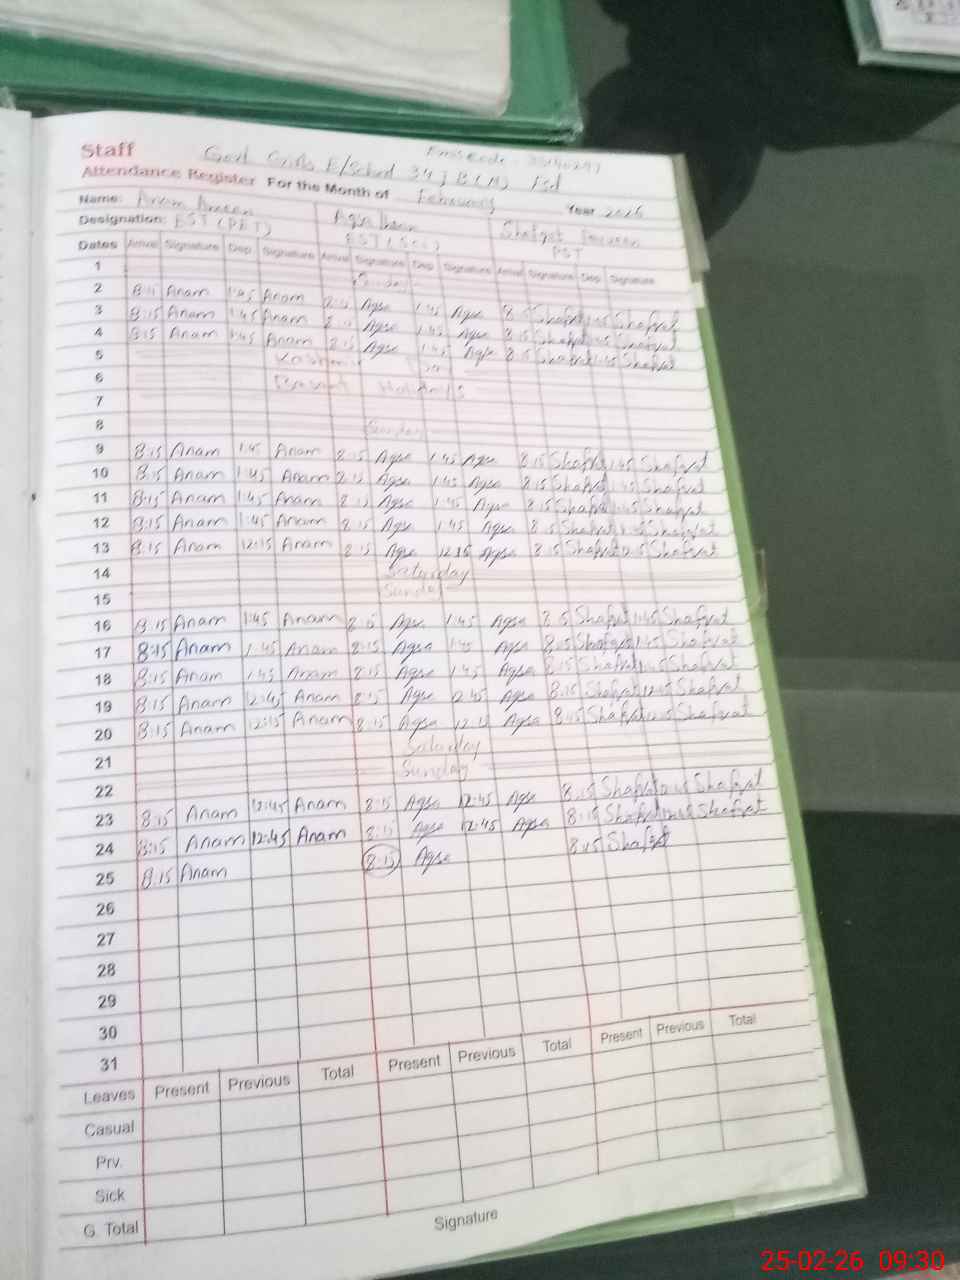 Staff Govt Girls E/School 34 J B (A) Fsd
Attendance Register For the Month of February Year 2026
Name: Anam Aqsa Shafqat
Designation: EST (PET) EST (Sci) PST
Dates Arrival Signature Dep Signature Arrival Signature Dep Signature Arrival Signature Dep Signature
1 Sunday
2 Anam 1:45 Anam Aqsa 1:45 Aqsa Shafqat Shafqat
3 8:15 Anam 1:45 Anam Aqsa 1:45 Aqsa 8:15 Shafqat Shafqat
4 8:15 Anam 1:45 Anam 8:15 Aqsa 1:45 Aqsa 8:15 Shafqat 1:45 Shafqat
5 Kashmir Day
6 Basant Holidays
7
8 Sunday
9 8:15 Anam 1:45 Anam 8:15 Aqsa 1:45 Aqsa 8:15 Shafqat 1:45 Shafqat
10 8:15 Anam 1:45 Anam 8:15 Aqsa 1:45 Aqsa 8:15 Shafqat 1:45 Shafqat
11 8:15 Anam 1:45 Anam 8:15 Aqsa 1:45 Aqsa 8:15 Shafqat 1:45 Shafqat
12 8:15 Anam 1:45 Anam 8:15 Aqsa 1:45 Aqsa 8:15 Shafqat 1:45 Shafqat
13 8:15 Anam 12:15 Anam 8:15 Aqsa 12:15 Aqsa 8:15 Shafqat Shafqat
14 Saturday
15 Sunday
16 8:15 Anam 1:45 Anam 8:15 Aqsa 1:45 Aqsa 8:15 Shafqat 1:45 Shafqat
17 8:15 Anam 1:45 Anam 8:15 Aqsa 1:45 Aqsa 8:15 Shafqat 1:45 Shafqat
18 8:15 Anam 1:45 Anam 8:15 Aqsa 1:45 Aqsa 8:15 Shafqat 1:45 Shafqat
19 8:15 Anam 12:45 Anam 8:15 Aqsa 12:45 Aqsa 8:15 Shafqat 12:45 Shafqat
20 8:15 Anam 12:15 Anam 8:15 Aqsa 12:15 Aqsa 8:15 Shafqat 12:15 Shafqat
21 Saturday
22 Sunday
23 8:15 Anam 12:45 Anam 8:15 Aqsa 12:45 Aqsa 8:15 Shafqat Shafqat
24 8:15 Anam 12:45 Anam 8:15 Aqsa 12:45 Aqsa 8:15 Shafqat Shafqat
25 8:15 Anam 8:15 Aqsa 8:15 Shafqat
26
27
28
29
30
31
Leaves Present Previous Total Present Previous Total Present Previous Total
Casual
Prv.
Sick
G. Total
Signature
25-02-26 09:30